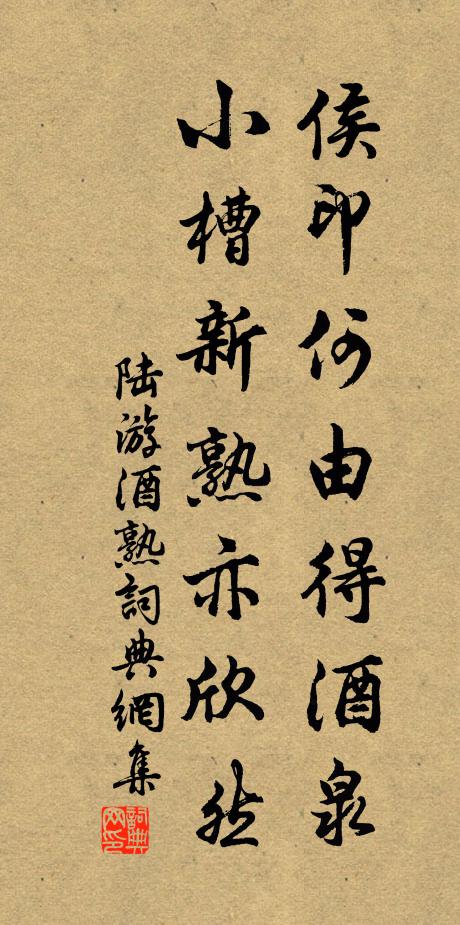 侯印何由得酒泉
小槽新熟亦欣然
陆游酒熟詞典網集
詞典网印